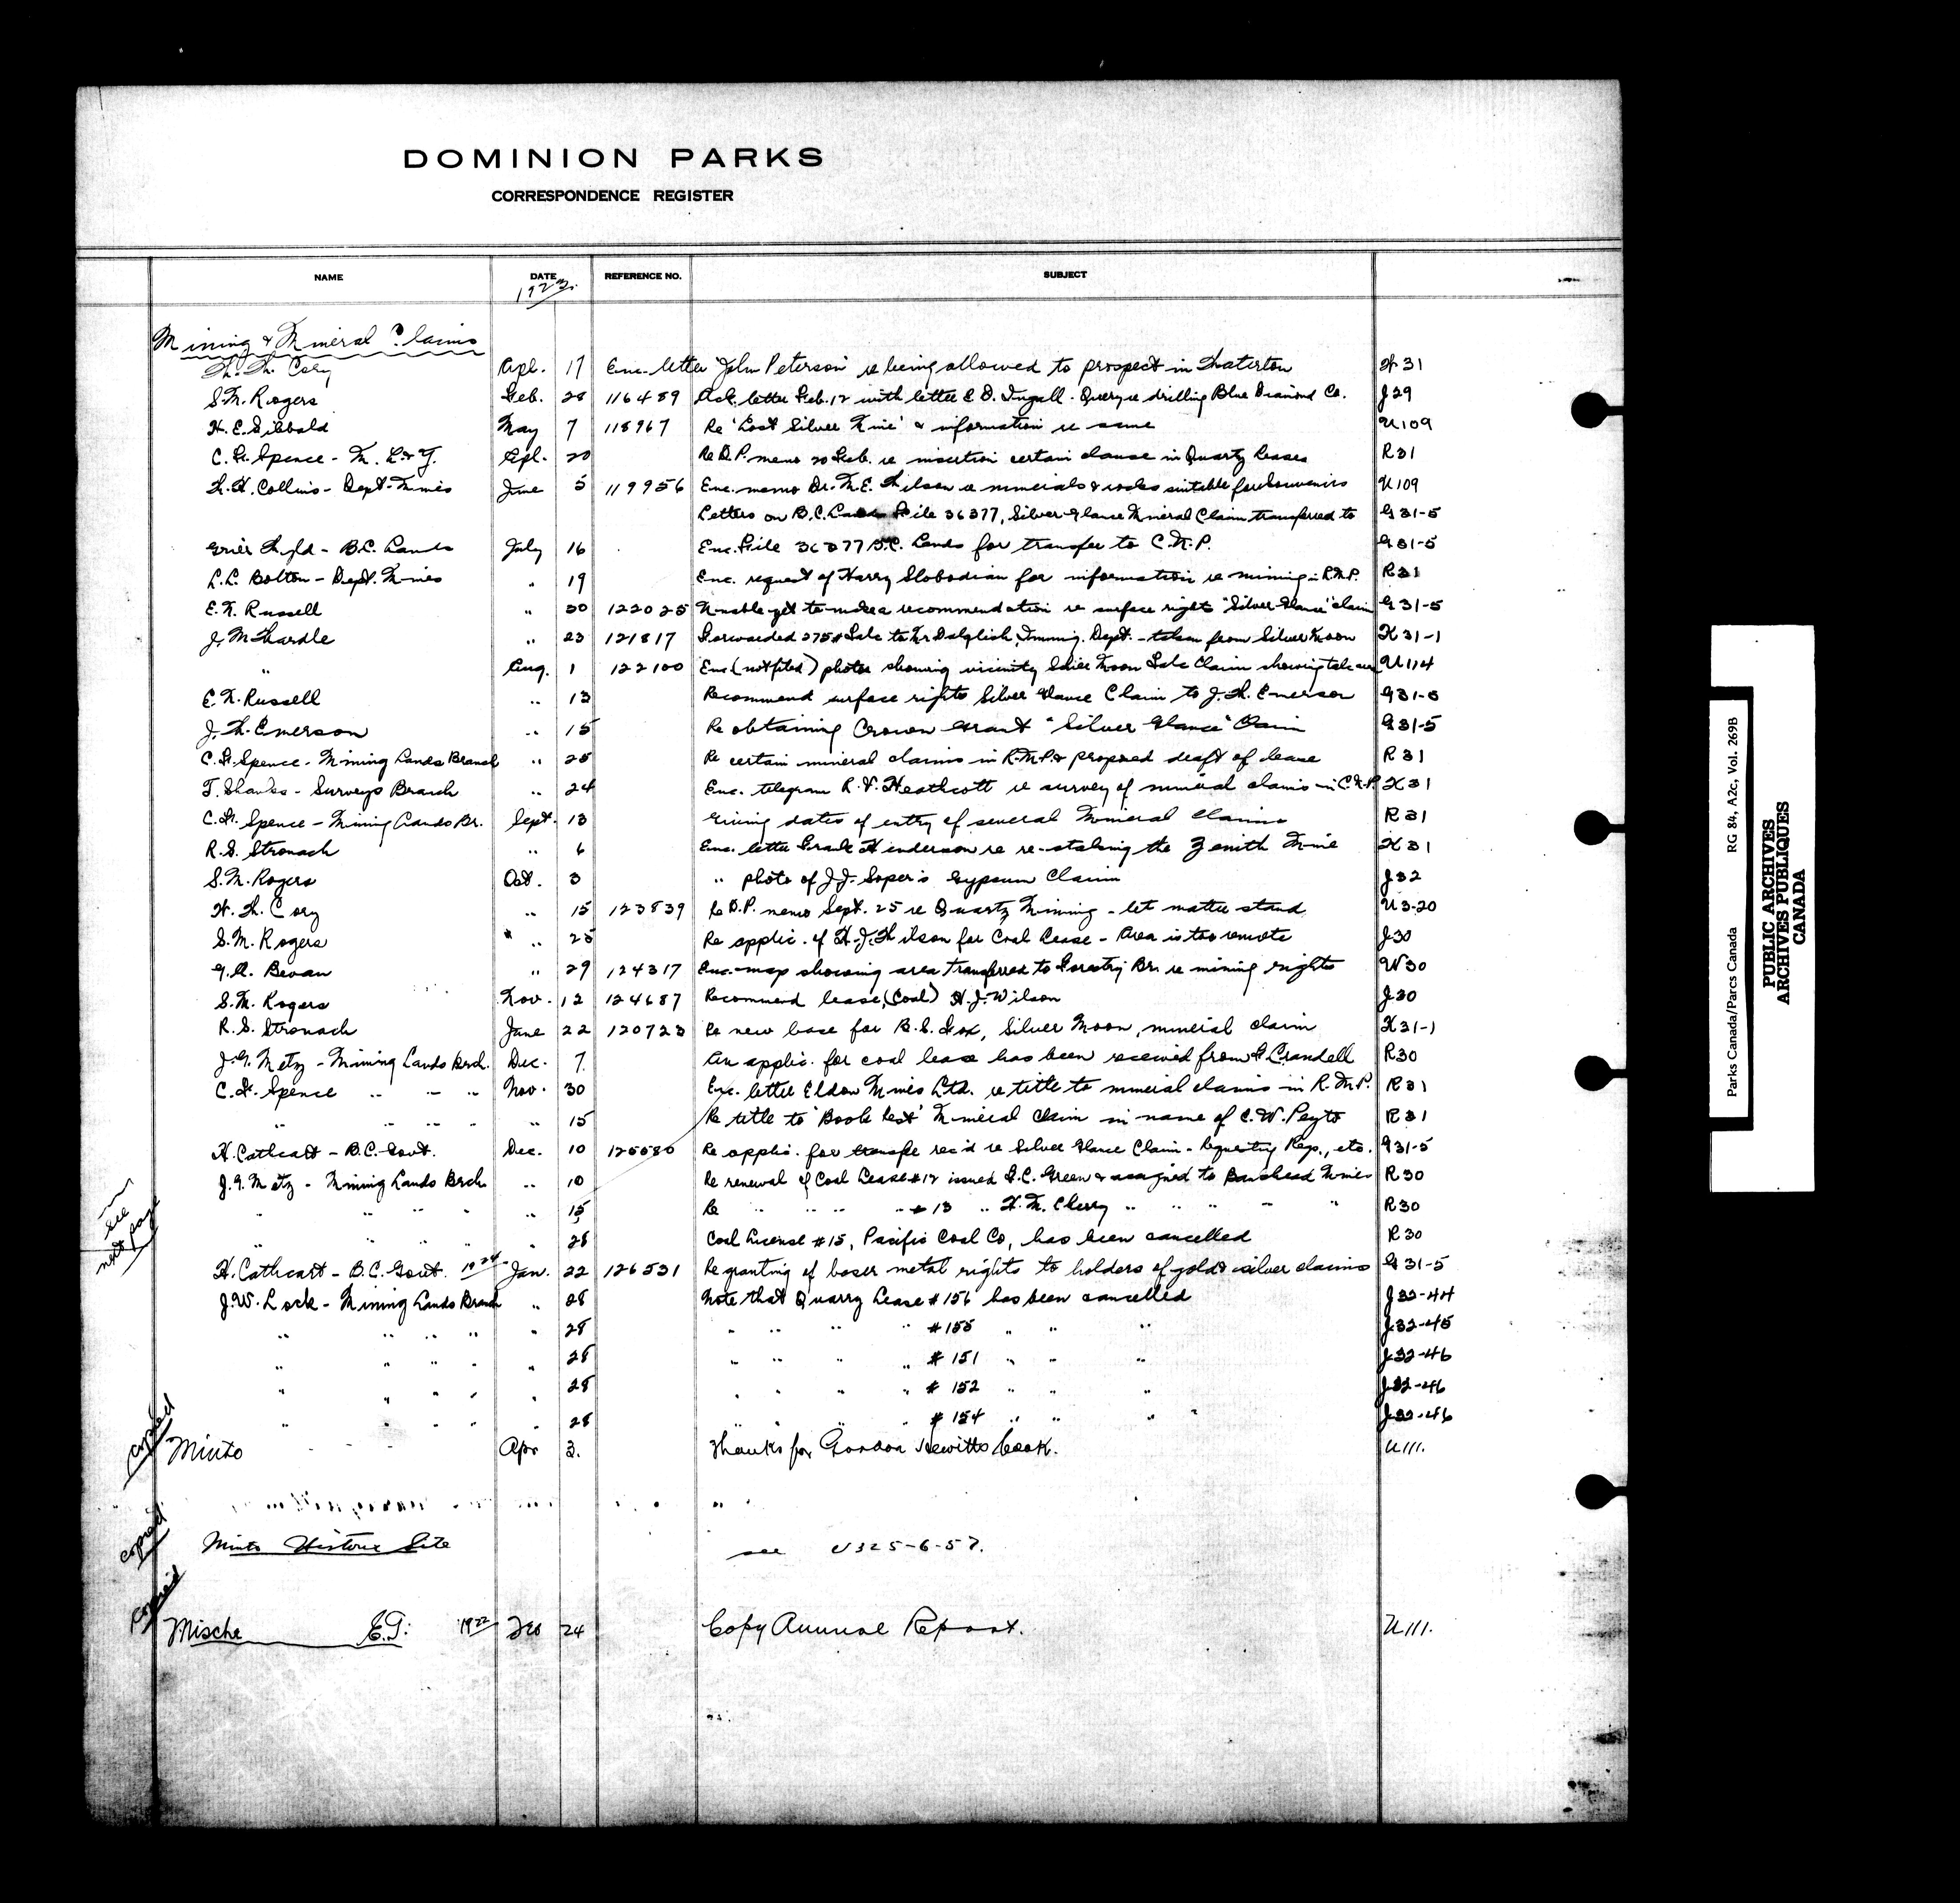 DOMINION PARKS
CORRESPONDENCE REGISTER
NAME DATE REFERENCE NO. SUBJECT
1923.
Mining & Mineral Claims
W. W. Cory Apl. 17 Enc. letter John Peterson re being allowed to prospect in Waterton W 31
S.M. Rogers Feb. 28 116489 Ack. letter Feb. 12 with letter E. D. Ingall - Query re drilling Blue Diamond Co. J29
H. E. Sibbald May 7 118967 Re 'Lost Silver Mine' & information re same U109
C. H. Spence - M. L. & Y. Apl. 20 Re D.P. memo 20 Feb. re insertion certain clause in Quartz Leases R31
W. H. Collins - Dept. Mines June 5 119956 Enc. memo Dr. M.E. Wilson re minerals & rocks suitable for Souvenirs U109
Letters on B.C. Lands File 36377, Silver Glance Mineral Claim transferred to G31-5
B.C. Lands July 16 Enc. File 36377 B.C. Lands for transfer to C.N.P. G31-5
L.L. Bolton - Dept. Mines " 19 Enc. request of Harry Slobodian for information re mining in R.M.P. R31
E. N. Russell " 30 122025 Unable yet to make a recommendation re surface rights "Silver Glance" claim G31-5
J. M. Wardle " 23 121817 Forwarded 275# talc to Mr Dalglish, Immig. Dept. - taken from Silver Moon K31-1
" Aug. 1 122100 Enc (not filed) photos showing vicinity Silver Moon Talc Claim showing talc U114
E. N. Russell " 13 Recommend surface rights Silver Glance Claim to J. W. Emerson G31-5
J. W. Emerson " 15 Re obtaining Crown Grant "Silver Glance" Claim G31-5
C. H. Spence - Mining Lands Branch " 25 Re certain mineral claims in R.M.P. & proposed draft of lease R 31
T. Shanks - Surveys Branch " 24 Enc. telegram R. V. Heathcott re survey of mineral claims in C.N.P. K31
C. H. Spence - Mining Lands Br. Sept. 13 Giving dates of entry of several Mineral Claims R31
R. S. Stronach " 6 Enc. letter Frank Henderson re re-staking the Zenith Mine K31
S. M. Rogers Oct. 3 " photo of J. J. Soper's Gypsum Claim J32
W. W. Cory " 15 123839 Re D.P. memo Sept. 25 re Quartz Mining - let matter stand U3-20
S. M. Rogers " 25 Re applic. of H. J. Wilson for Coal Lease - Area is too remote J30
G. A. Bevan " 29 124317 Enc. map showing area transferred to Forestry Br. re mining rights W30
S. M. Rogers Nov. 12 124687 Recommend lease (Coal) H. J. Wilson J30
R. S. Stronach June 22 120723 Re new lease for B. S. Fox, Silver Moon, mineral claim K31-1
J. G. Metz - Mining Lands Brch. Dec. 7. An applic. for coal lease has been received from F. Crandell R30
C. H. Spence " - " Nov. 30 Enc. letter Eldon Mines Ltd. re title to mineral claims in R.M.P. R31
" " " " " 15 Re title to 'Book Rest' Mineral Claim in name of E. W. Peyto R31
H. Cathcart - B.C. Govt. Dec. 10 125580 Re applic. for transfer rec'd re Silver Glance Claim - Requesting Regs., etc. G31-5
J. G. Metz - Mining Lands Brch " 10 Re renewal of Coal Lease #12 issued F. C. Green & assigned to Bankhead Mines R30
" " " " " 15 Re " " " " #13 " H. M. Cherry " " " - " R30
see
next page
" " " " " 28 Coal License #15, Pacific Coal Co, has been cancelled R30
H. Cathcart - B.C. Govt. 1924 Jan. 22 126531 Re granting of baser metal rights to holders of gold & silver claims G31-5
J. W. Lock - Mining Lands Branch " 28 Note that Quarry Lease #156 has been cancelled J32-44
" " " " " 28 " " " " #155 " " " J32-45
" " " " " 28 " " " " #151 " " " J32-46
" " " " " 28 " " " " #152 " " " J32-46
" " " " " 28 " " " " #154 " " " J32-46
copied
Minto Apr 3. Thanks for Gordon Hewitts book. U111.
copied
Minto Historic Site see U325-6-57.
copied
Mische E.T. 1922 Feb 24 Copy Annual Report. U111.
Parks Canada/Parcs Canada RG 84, A2c, Vol. 269B
PUBLIC ARCHIVES
ARCHIVES PUBLIQUES
CANADA